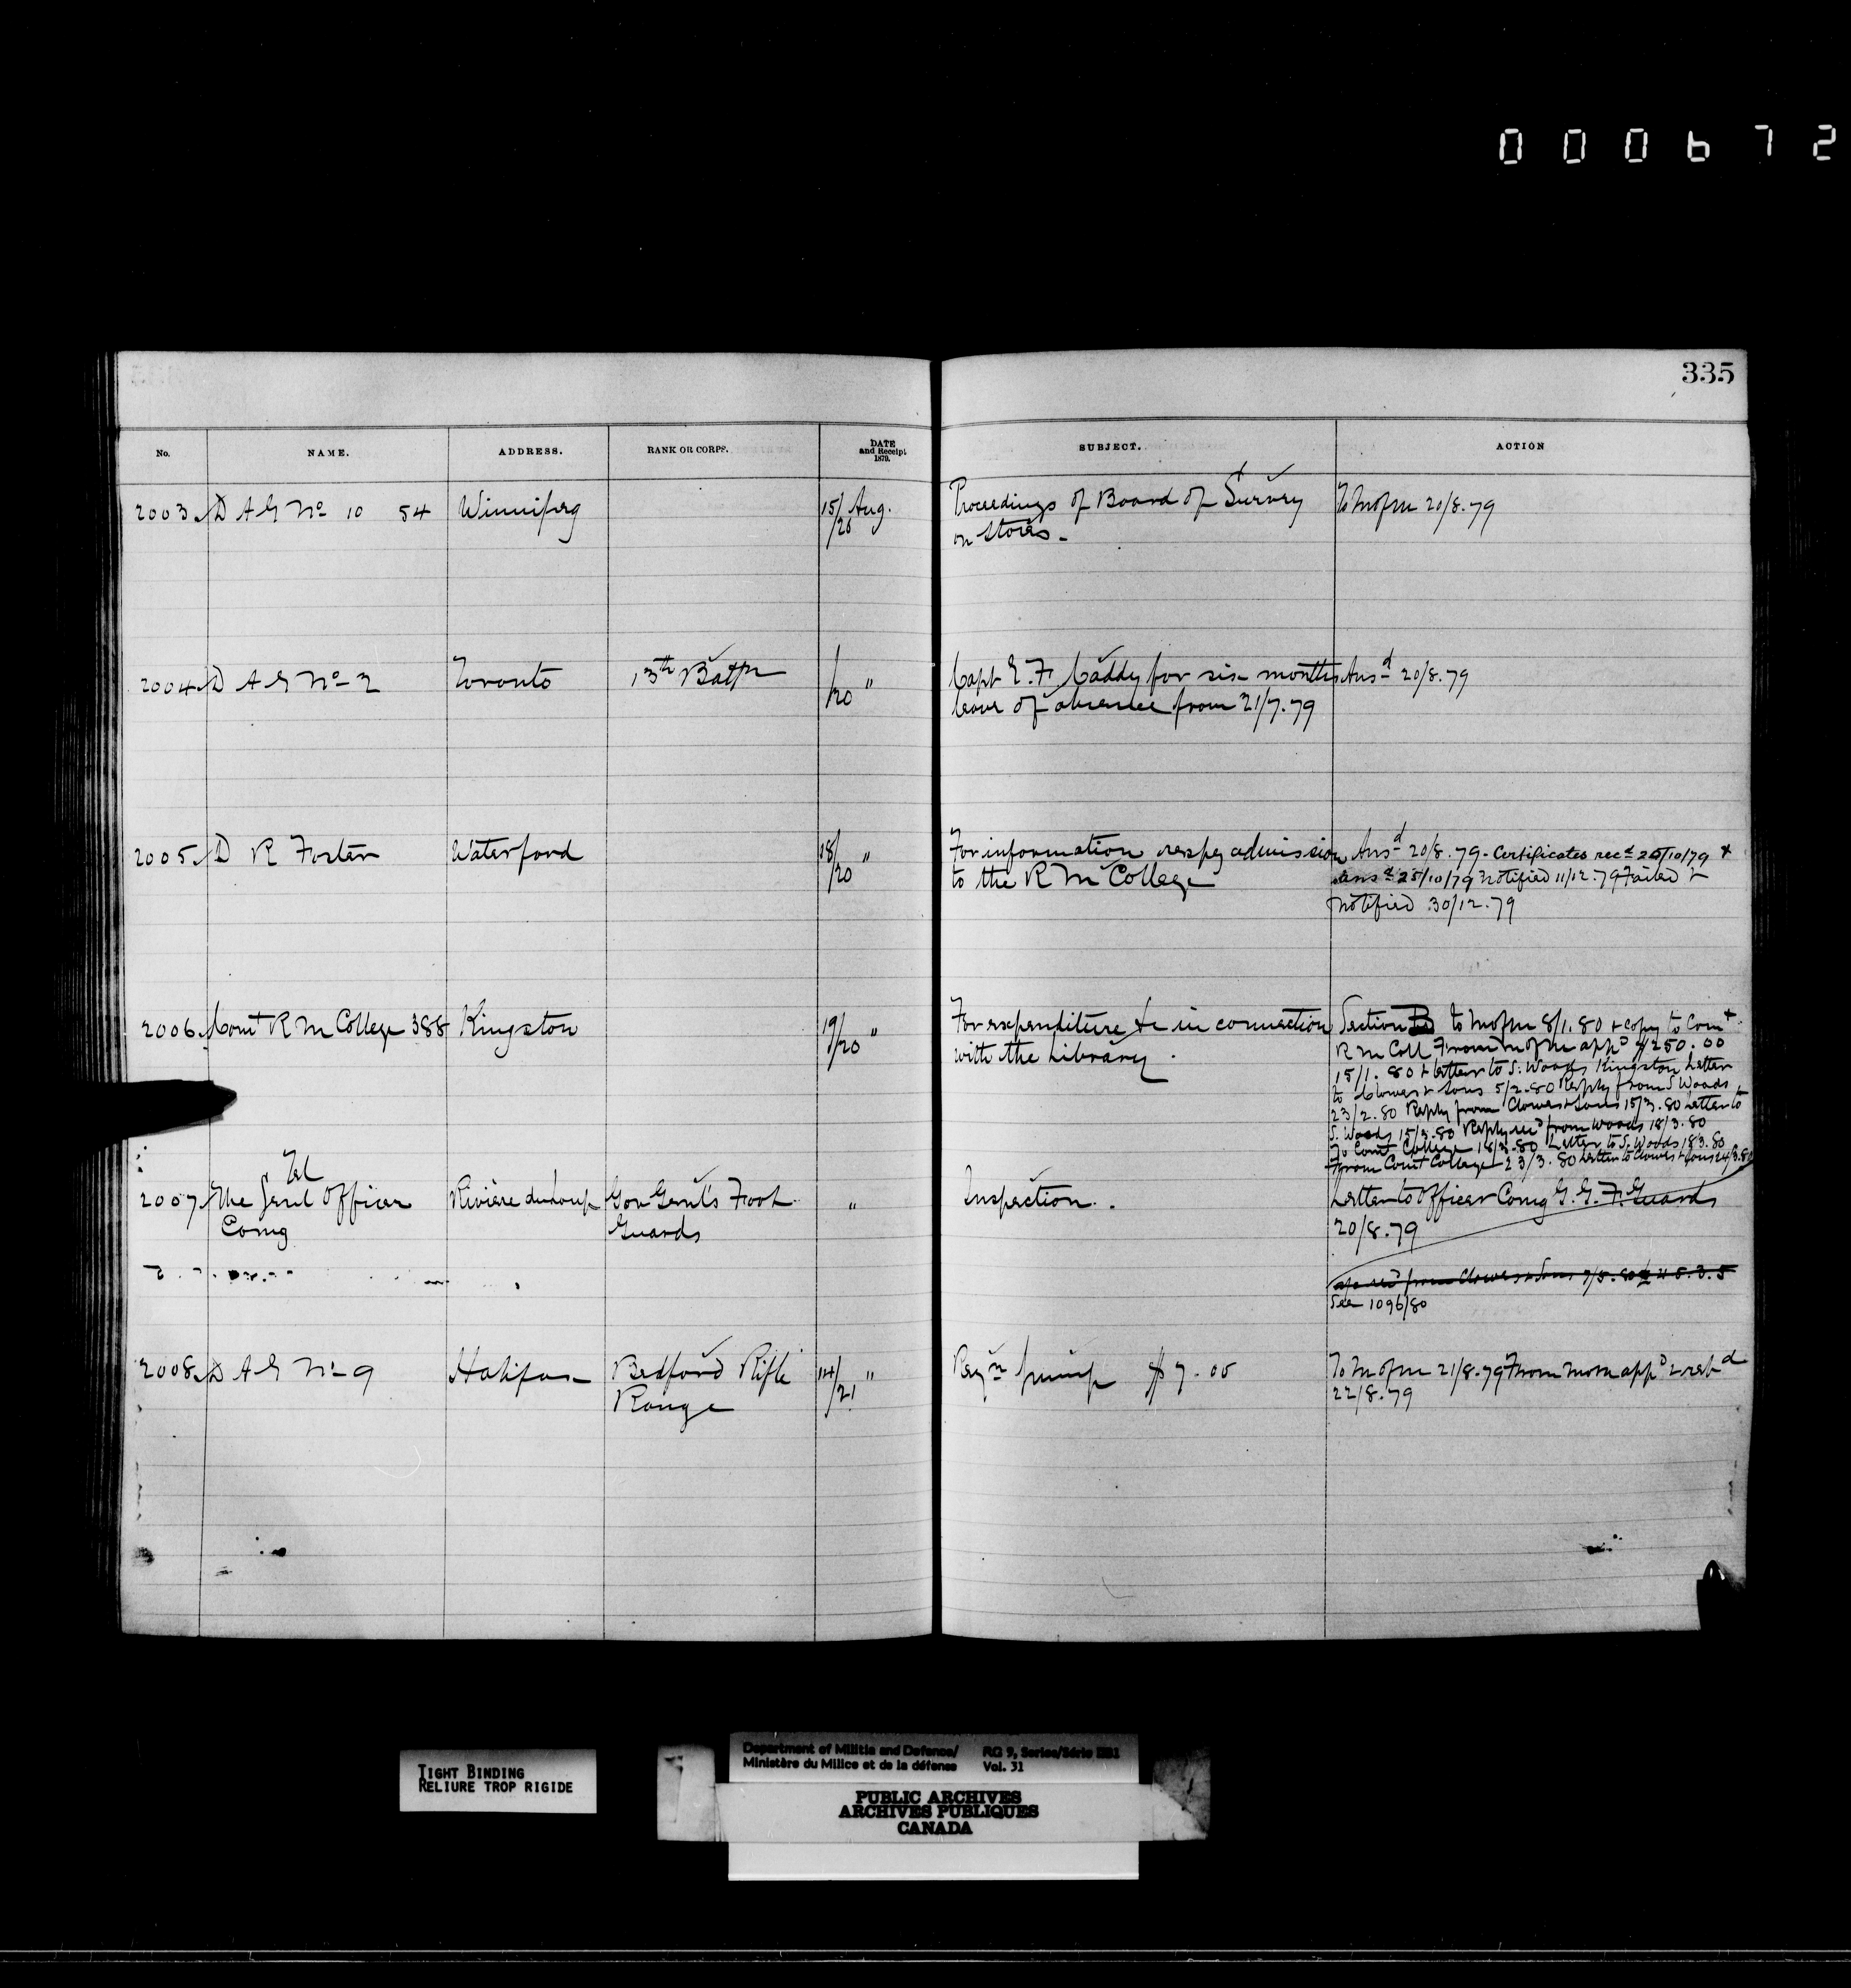 000672
335
No. NAME. ADDRESS. RANK OR CORPS. DATE and Receipt 1879. SUBJECT. ACTION
2003 D A G No 10 54 Winnipeg 15/20 Aug. Proceedings of Board of Survey To M of M 20/8.79
on Stores -
2004 D A G No 2 Toronto 13th Battn /20 " Capt E. F. Caddy for six months Ansd 20/8.79
leave of absence from 21/7.79
2005 D R Foster Waterford 18/20 " For information respg admission Ansd 20/8.79 - Certificates recd 25/10/79 &
to the R M College ansd 25/10/79 Notified 11/12.79 Failed &
Notified 30/12.79
2006 Comt R M College 388 Kingston 19/20 " For expenditure &c in connection Section to M of M 8/1.80 & copy to Comt
with the Library. R M Coll From M of M appd $250.00
15/1.80 & letter to S. Woods Kingston Letter
to Clowes & Sons 5/2.80 Reply from S Woods
23/2.80 Reply from Clowes & Sons 15/3.80 Letter to
S. Woods 15/3.80 Reply recd from Woods 18/3.80
To Comt College 18/3.80 Letter to S. Woods 18/3.80
From Comt College 23/3.80 Letter to Clowes & Sons 24/3.80
Tel
2007 The Genl Officer Rivière du Loup Gov Genl's Foot " Inspection. Letter to Officer Comg G. G. F. Guards
Comg Guards 20/8.79
recd from Clowes & Sons 7/5.80 £ 5.3.5
See 1096/80
2008 D A G No 9 Halifax Bedford Rifle 14/21 " Reqn pump $7.00 To M of M 21/8.79 From M of M appd & retd
Range 22/8.79
TIGHT BINDING
RELIURE TROP RIGIDE
Department of Militia and Defence/ RG 9, Series/Série IIB1
Ministère du Milice et de la défense Vol. 31
PUBLIC ARCHIVES
ARCHIVES PUBLIQUES
CANADA